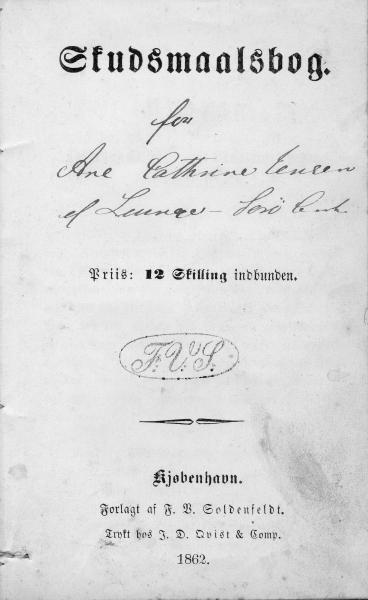 Skudsmaalsbog.
for
Ane Cathrine Jensen
af Lunge - Sorö Amt.
Priis: 12 Skilling indbunden.
F. V. S.
Kjøbenhavn.
Forlagt af F. V. Soldenfeldt.
Trykt hos J. D. Qvist & Comp.
1862.